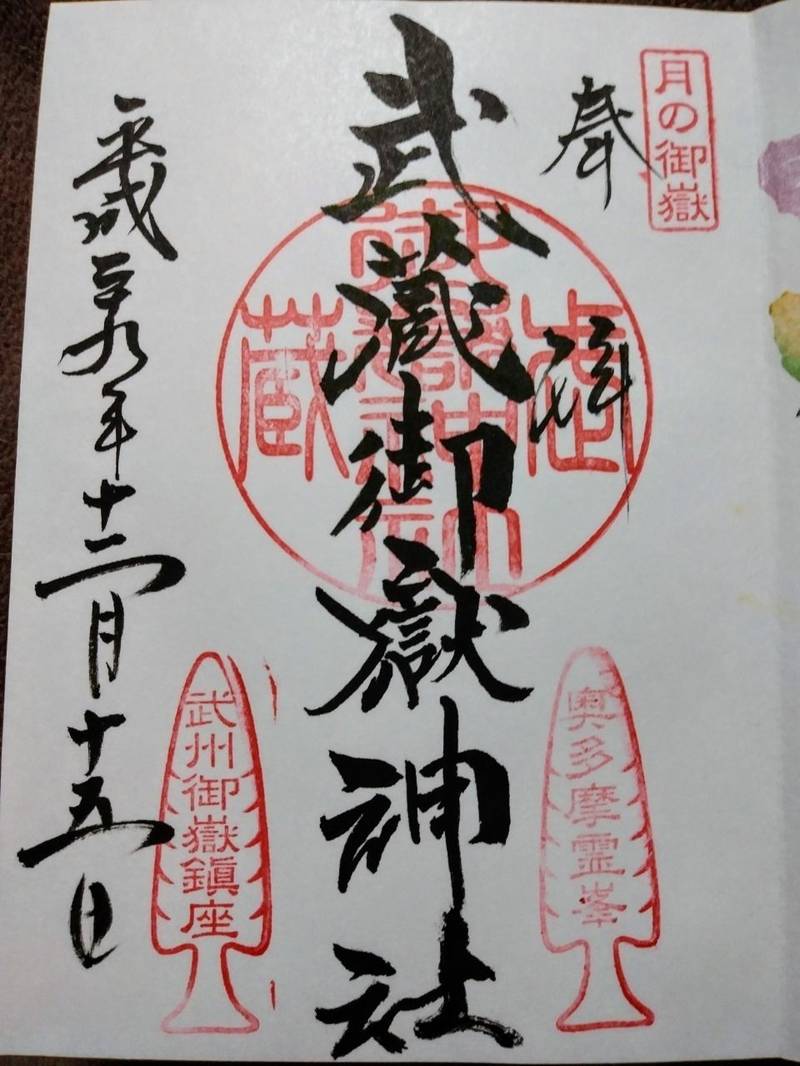 月の御嶽
奉拝
武蔵御嶽神社
奥多摩霊峯
武州御嶽鎮座
平成二十九年十二月十五日